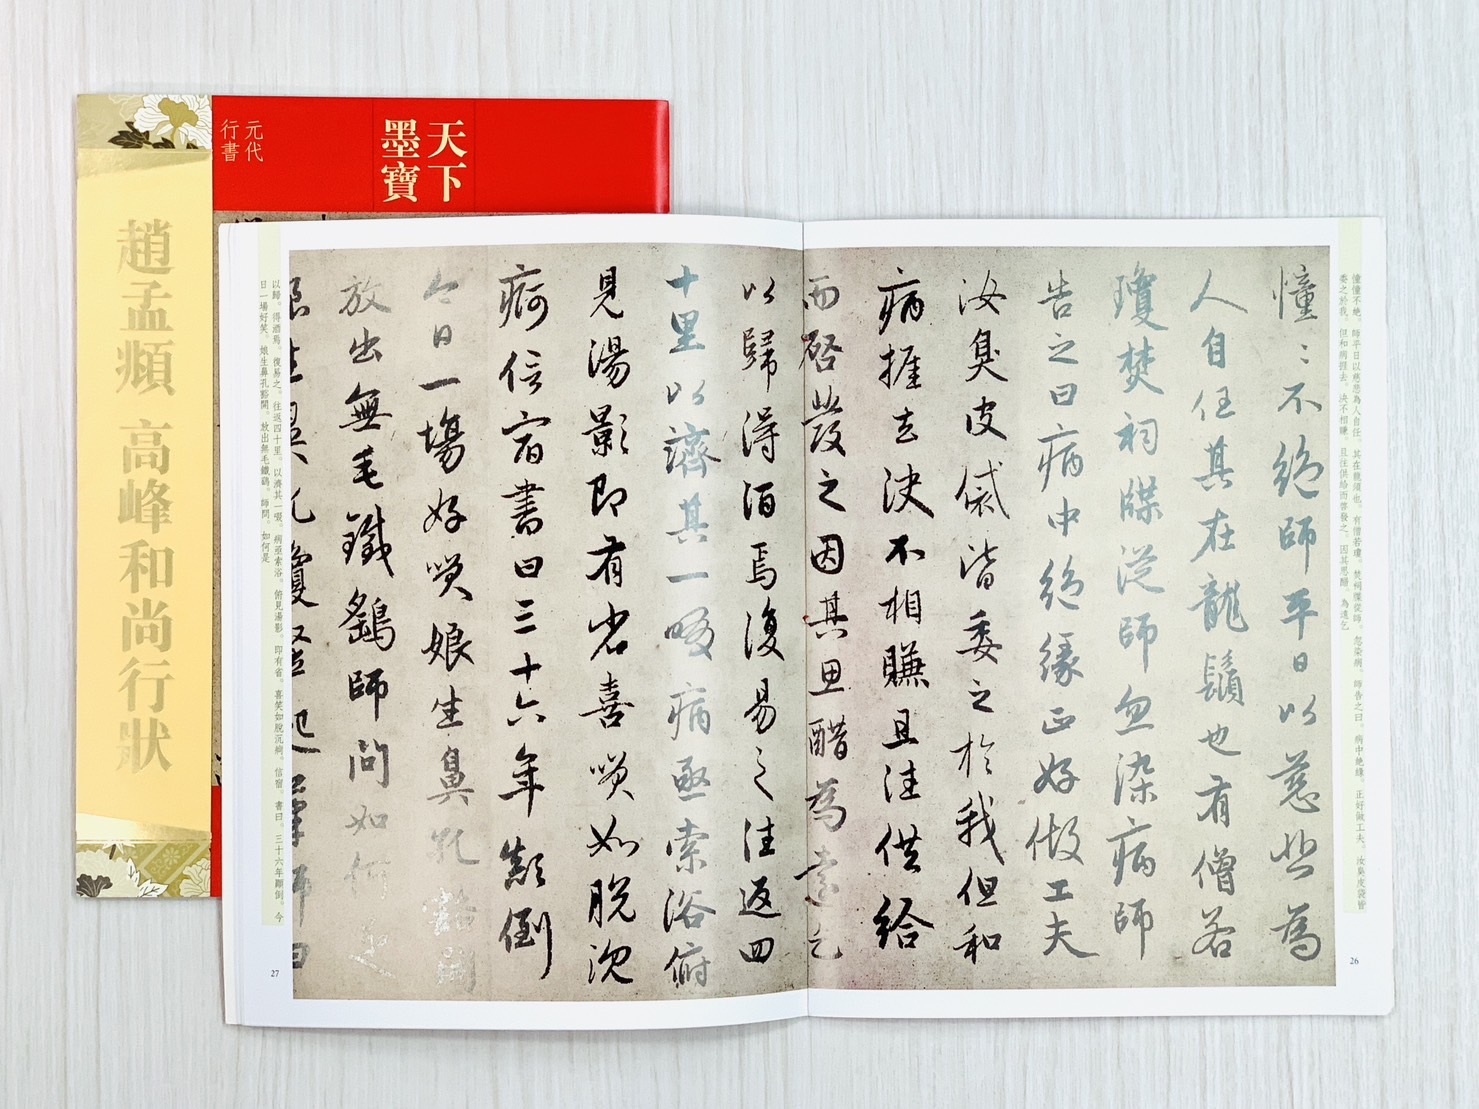 天下
墨寶
元代
行書
趙孟頫 高峰和尚行狀
憧憧不絶。師平日以慈悲為人自任。其在龍須也。有僧若瓊。焚祠牒從師。忽染病。師告之曰。病中絶緣。正好做工夫。汝臭皮袋皆
委之於我。但和病捱去。決不相賺。且往供給而啓發之。因其思醋。為遠乞
26
憧〻不絶師平日以慈悲為
人自任其在龍鬚也有僧若
瓊焚祠牒從師忽染病師
告之曰病中絶緣正好做工夫
汝臭皮袋皆委之於我但和
病捱去決不相賺且往供給
而啓發之因其思醋為遠乞
以歸得酒焉復易之往返四
十里以濟其一啜病亟索浴俯
見湯影即有省喜笑如脫沉
痾信宿書曰三十六年顛倒
今日一場好笑娘生鼻孔豁開
放出無毛鐵鷂師問如何是
以歸。得酒焉。復易之。往返四十里。以濟其一啜。病亟索浴。俯見湯影。即有省。喜笑如脫沉痾。信宿。書曰。三十六年顛倒。今
日一場好笑。娘生鼻孔豁開。放出無毛鐵鷂。師問。如何是
27